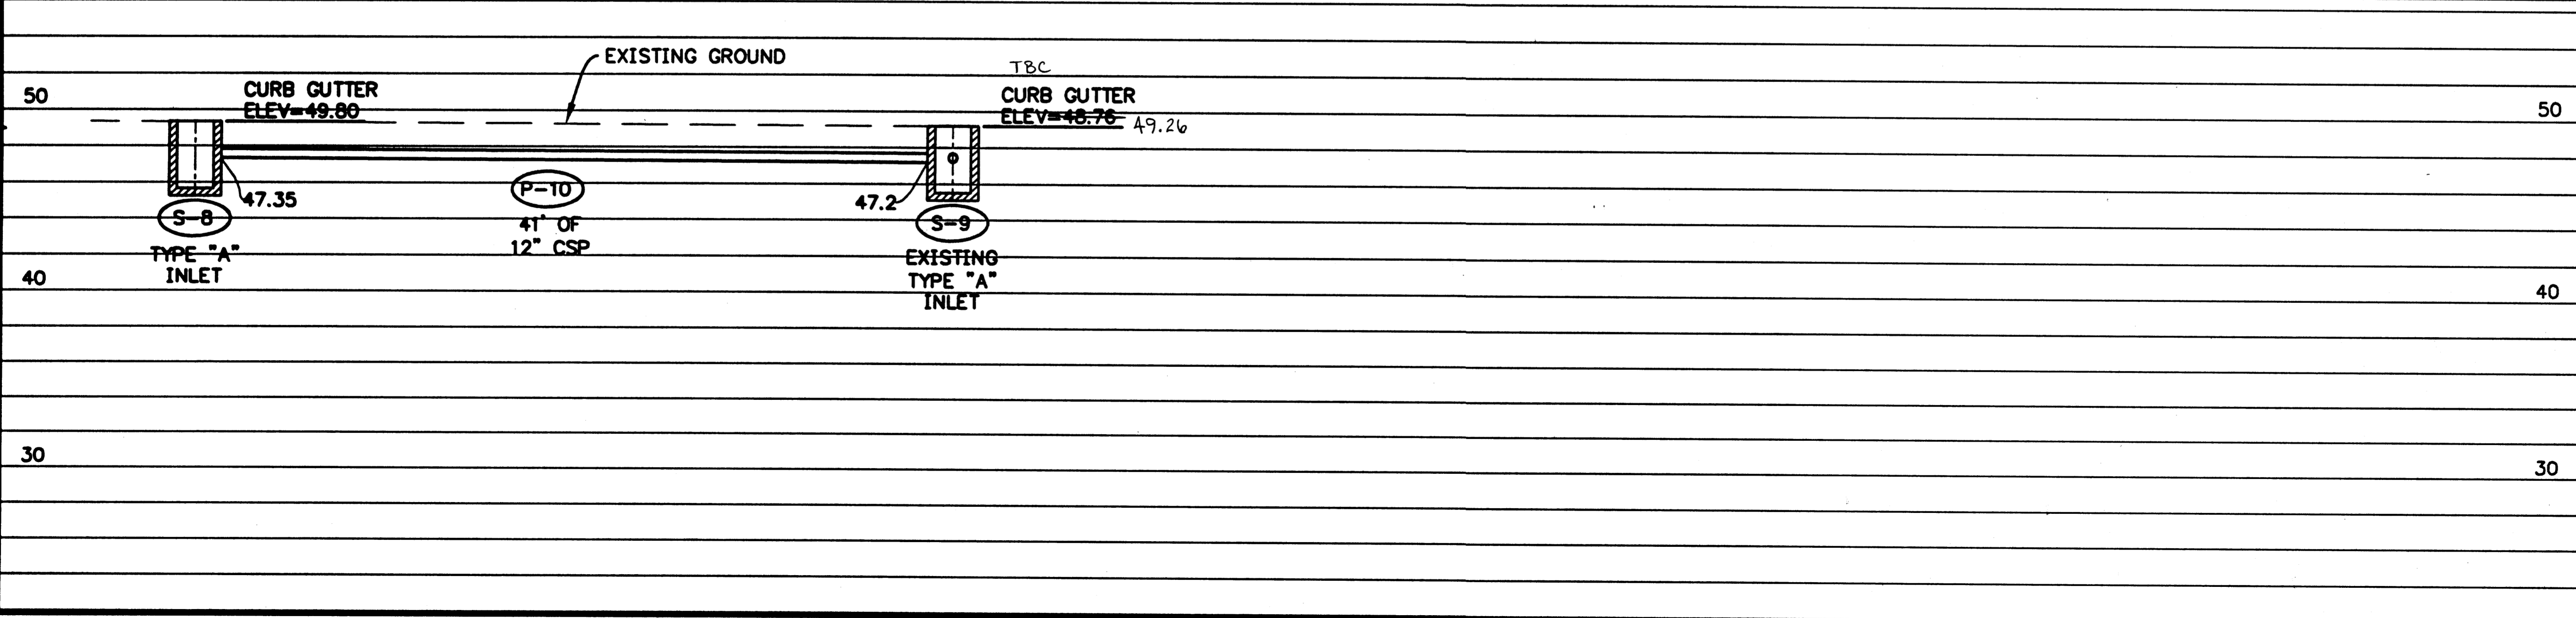 EXISTING GROUND
TBC
50
CURB GUTTER
ELEV=49.80
CURB GUTTER
ELEV=48.76
49.26
50
47.35
P-10
47.2
S-8
41' OF
12" CSP
S-9
TYPE "A"
INLET
EXISTING
TYPE "A"
INLET
40
40
30
30